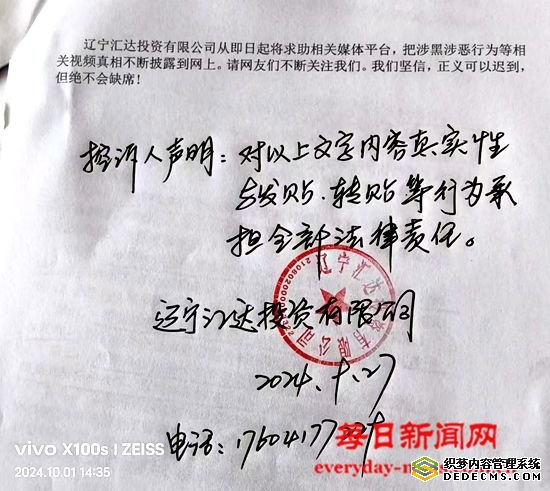 辽宁汇达投资有限公司从即日起将求助相关媒体平台，把涉黑涉恶行为等相
关视频真相不断披露到网上。请网友们不断关注我们。我们坚信，正义可以迟到，
但绝不会缺席！
控诉人声明：对以上文字内容真实性
与发贴、转贴等行为承
担全部法律责任。
辽宁汇达投资有限公司
辽宁汇达投资有限公司
2024.9.27
电话：17604177
每日新闻网
everyday-n
vivo X100s | ZEISS
2024.10.01 14:35
织梦内容管理系统